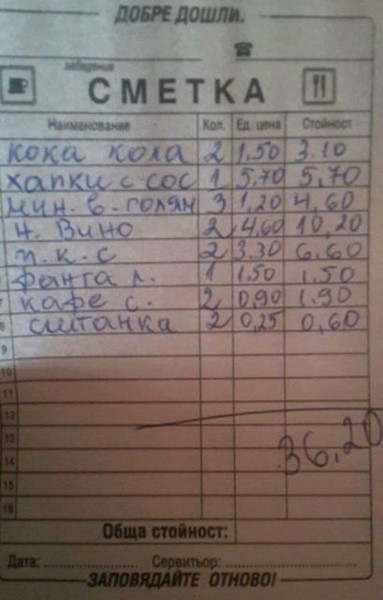 ДОБРЕ ДОШЛИ.
заведение
СМЕТКА
Наименование Кол. Ед. цена Стойност
кока кола 2 1.50 3.10
хапки с сос 1 5,70 5,70
мин. в. голям 3 1,20 4,60
н. Вино 2 4,60 10,20
п. к. с 2 3.30 6.60
фанта л. 1 1.50 1.50
7 кафе с. 2 0,90 1.90
8 сметанка 2 0,25 0,60
9
10
11
12
13 36,20
14
15
16
Обща стойност:
Дата: Сервитьор:
ЗАПОВЯДАЙТЕ ОТНОВО!